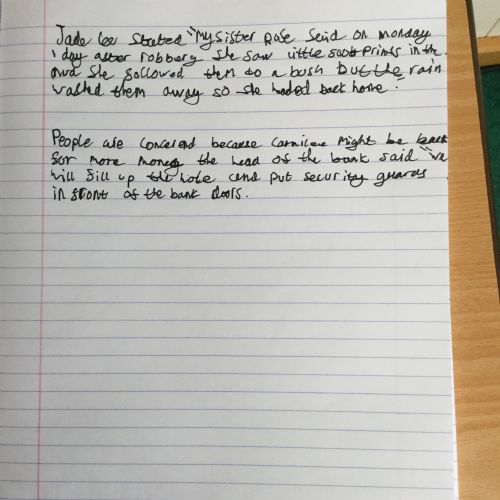 Jade lee Stated "My Sister Rose Said on monday
1 day after robbery She saw little foot Prints in the
mud She followed them to a bush but the rain
washed them away so she headed back home.
People are concerend because carnilene might be back
for more money the head of the bank said "we
will fill up the hole and put security guards
in front of the bank doors.